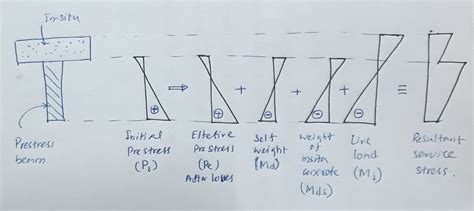 In-situ
Prestress
beam
⊕
Initial
Prestress
(Pi)
⇒
⊕
Effetive
Prestress
(Pe)
After losses
+
⊖
Self
weight
(Md)
+
⊖
weight
of
insitu
concrete
(Mds)
+
⊖
Live
load
(ML)
≡
Resultant
service
stress.